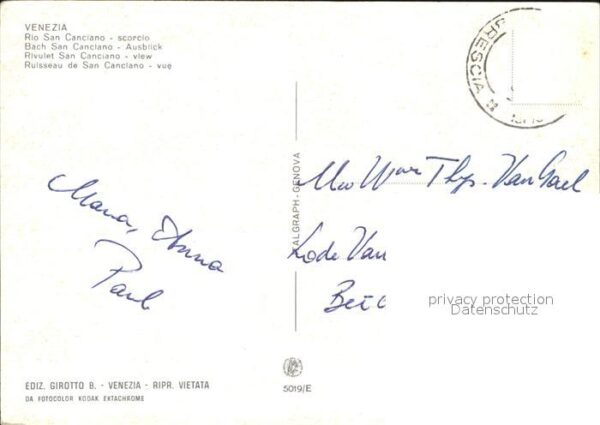 VENEZIA
Rio San Canciano - scorcio
Bach San Canciano - Ausblick
Rivulet San Canciano - view
Ruisseau de San Canciano - vue
BRESCIA
ALGRAPH-GENOVA
Maria, Anna
Paul
Thys - Van Gael
Lode Van
privacy protection
Datenschutz
EDIZ. GIROTTO B. - VENEZIA - RIPR. VIETATA
DA FOTOCOLOR KODAK EKTACHROME
5019/E